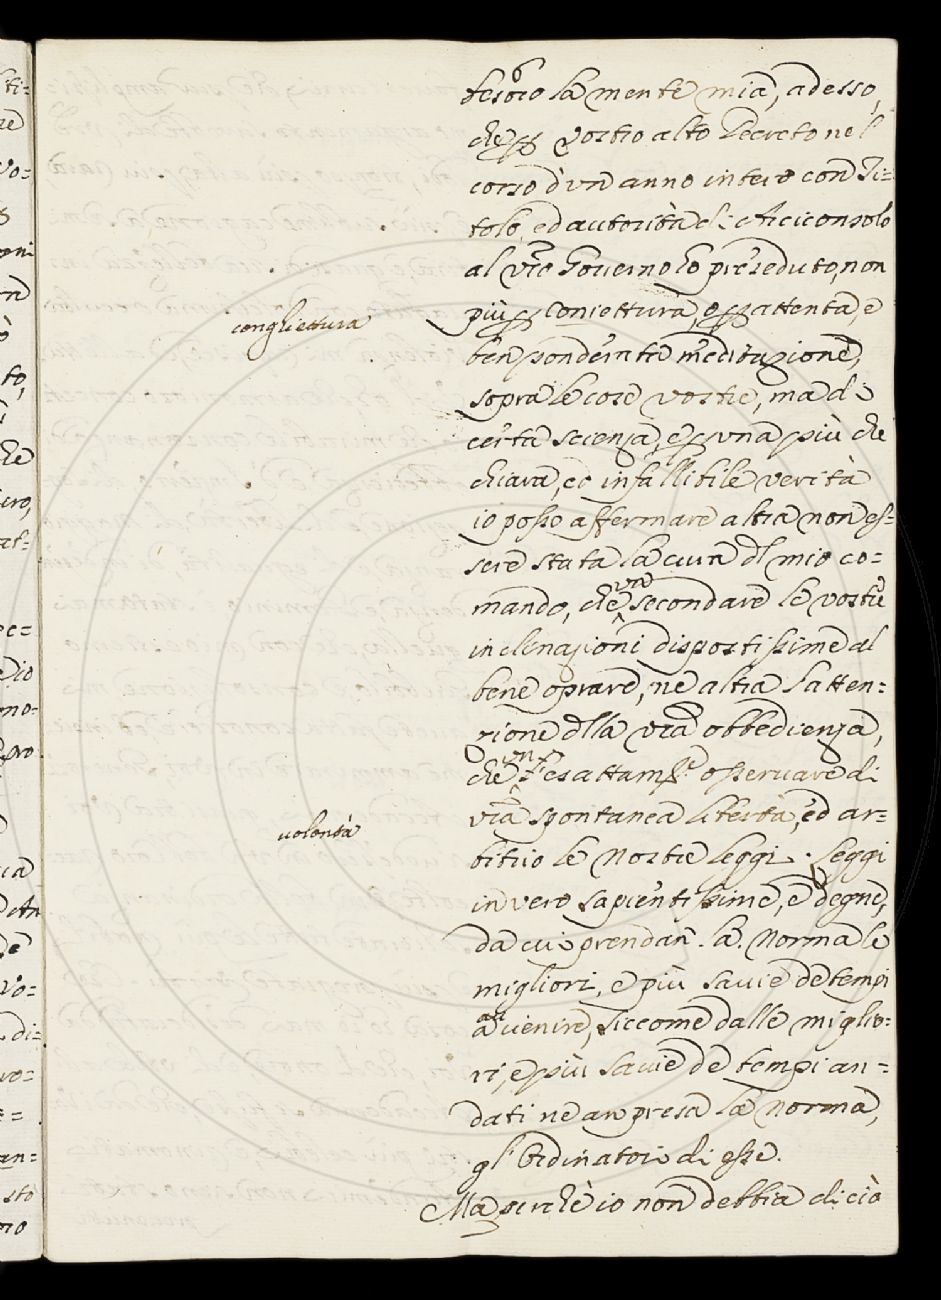 tesoro la mente mia, adesso,
che p vostro alto Decreto nel
corso d'un anno intero con Ti-
tolo, ed autorità di Arciconsolo
al vro Governo ho preseduto, non
più p coniettura, e p attenta, e
congliettura
ben ponderata meditazione,
sopra le cose vostre, ma di
certa scienza, e p una più che
chiara, ed infallibile verità
io posso affermare altra non es-
sere stata la cura dl mio co-
mando, che un secondare le vostre
inclenazioni dispostissime al
bene oprare, ne altra l'atten-
zione dlla vra obbedienza,
che un esattamte osservare di
vra spontanea libertà, ed ar-
volontà
bitrio le nostre leggi. Leggi
invero sapientissime, e degne,
da cui prendan la norma le
migliori, e più savie de tempi
avvenire, siccome dalle miglio-
ri, e più savie de tempi an-
dati ne an presa la norma,
gl'Ordinatori di esse.
Ma perchè io non debbia di ciò